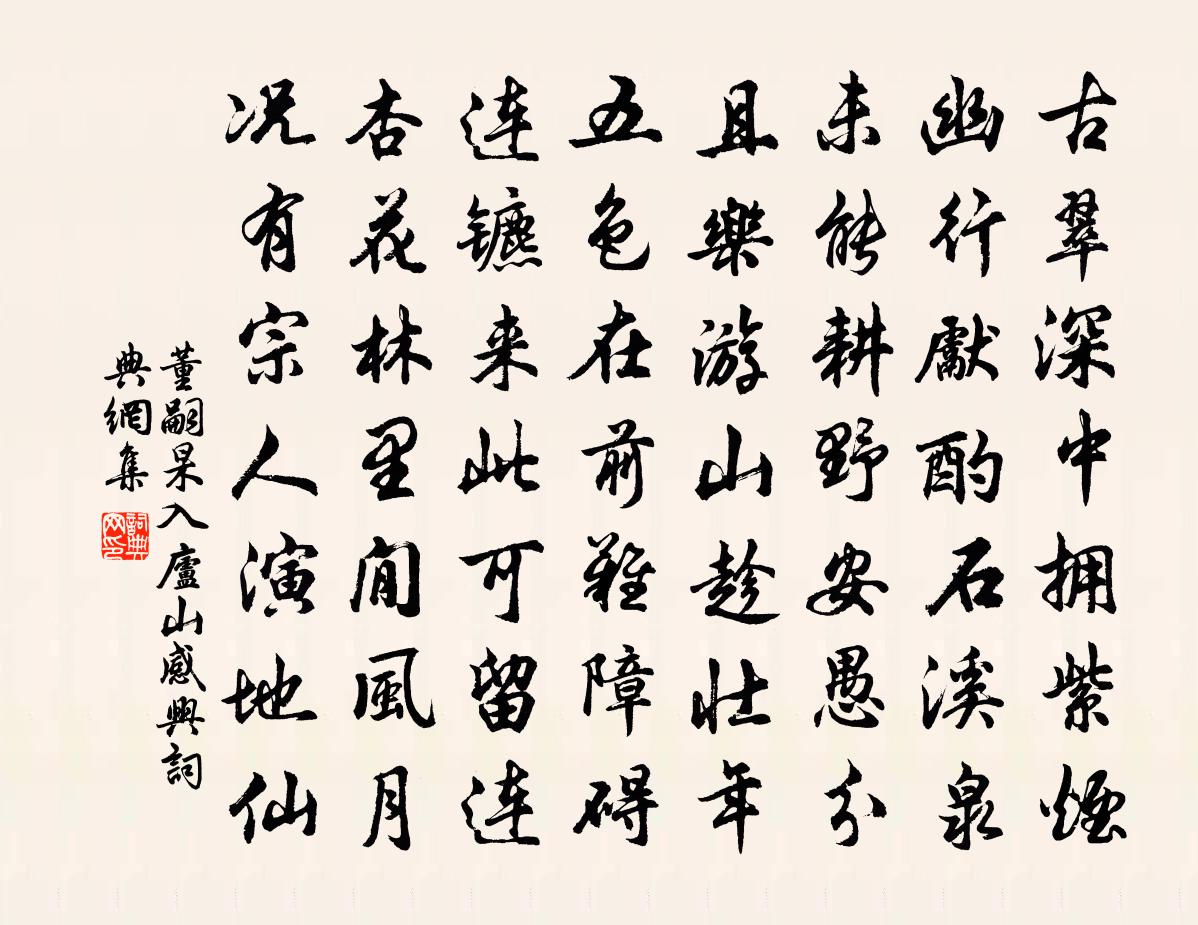 古翠深中拥紫煙
幽行獻酌石溪泉
未能耕野安愚分
且樂游山趁壮年
五色在前難障碍
连镳来此可留连
杏花林里間風月
况有宗人演地仙
董嗣杲入廬山感興詞
典網集
詞典
网印